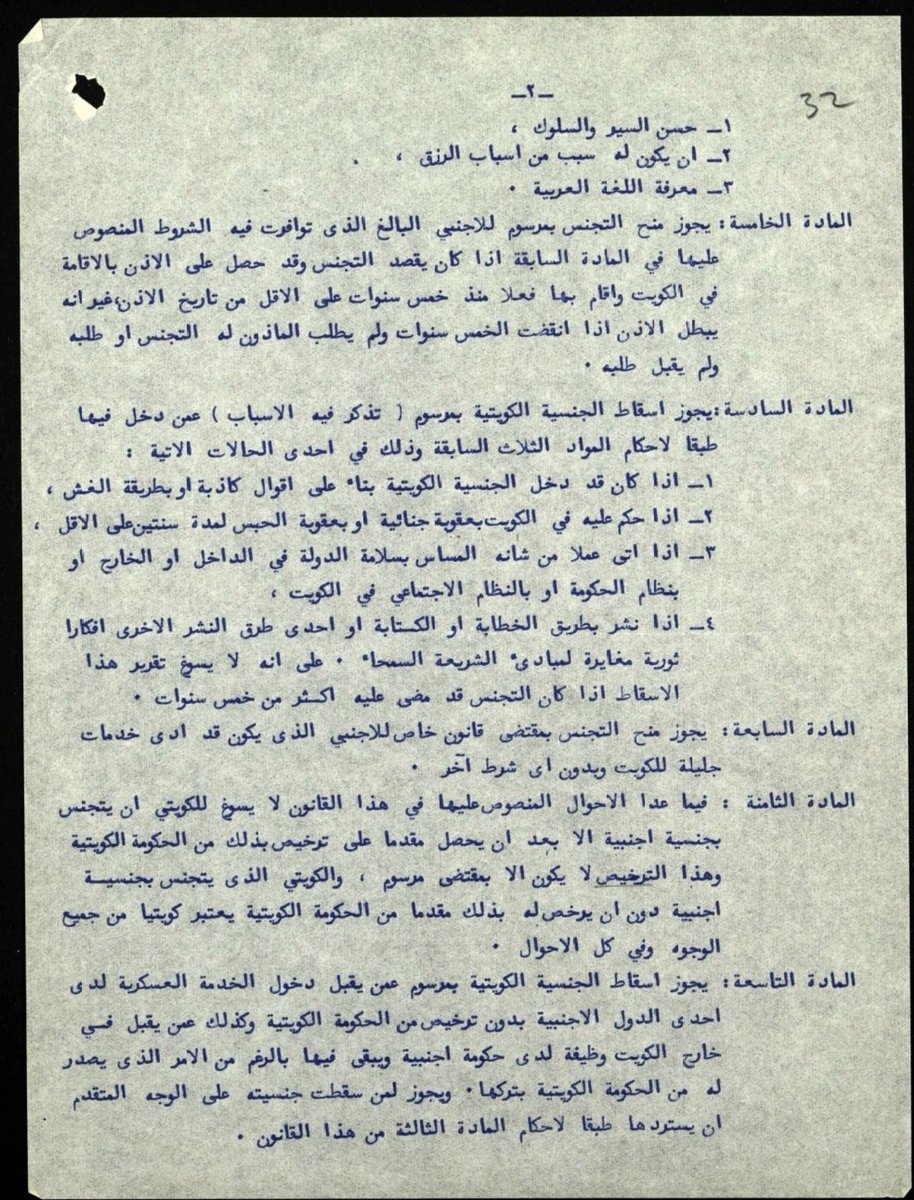 ـ٢ـ
32
١ـ حسن السير والسلوك ،
٢ـ ان يكون له سبب من اسباب الرزق ،
٣ـ معرفة اللغة العربية ٠
المادة الخامسة: يجوز منح التجنس بمرسوم للاجنبي البالغ الذى توافرت فيه الشروط المنصوص
عليها في المادة السابقة اذا كان يقصد التجنس وقد حصل على الاذن بالاقامة
في الكويت واقام بها فعلا منذ خمس سنوات على الاقل من تاريخ الاذن،غير انه
يبطل الاذن اذا انقضت الخمس سنوات ولم يطلب الماذون له التجنس او طلبه
ولم يقبل طلبه ٠
المادة السادسة:يجوز اسقاط الجنسية الكويتية بمرسوم ( تذكر فيه الاسباب ) عمن دخل فيها
طبقا لاحكام المواد الثلاث السابقة وذلك في احدى الحالات الاتية :
١ـ اذا كان قد دخل الجنسية الكويتية بناء على اقوال كاذبة او بطريقة الغش ،
٢ـ اذا حكم عليه في الكويت بعقوبة جنائية او بعقوبة الحبس لمدة سنتين على الاقل ،
٣ـ اذا اتى عملا من شانه المساس بسلامة الدولة في الداخل او الخارج او
بنظام الحكومة او بالنظام الاجتماعي في الكويت ،
٤ـ اذا نشر بطريق الخطابة او الكتابة او احدى طرق النشر الاخرى افكارا
ثورية مغايرة لمبادىء الشريعة السمحاء ٠ على انه لا يسوغ تقرير هذا
الاسقاط اذا كان التجنس قد مضى عليه اكثر من خمس سنوات ٠
المادة السابعة: يجوز منح التجنس بمقتضى قانون خاص للاجنبي الذى يكون قد ادى خدمات
جليلة للكويت وبدون اى شرط آخر ٠
المادة الثامنة : فيما عدا الاحوال المنصوص عليها في هذا القانون لا يسوغ للكويتي ان يتجنس
بجنسية اجنبية الا بعد ان يحصل مقدما على ترخيص بذلك من الحكومة الكويتية
وهذا الترخيص لا يكون الا بمقتضى مرسوم ، والكويتي الذى يتجنس بجنسيـة
اجنبية دون ان يرخص له بذلك مقدما من الحكومة الكويتية يعتبر كويتيا من جميع
الوجوه وفي كل الاحوال ٠
المادة التاسعة: يجوز اسقاط الجنسية الكويتية بمرسوم عمن يقبل دخول الخدمة العسكرية لدى
احدى الدول الاجنبية بدون ترخيص من الحكومة الكويتية وكذلك عمن يقبل فـي
خارج الكويت وظيفة لدى حكومة اجنبية ويبقى فيها بالرغم من الامر الذى يصدر
له من الحكومة الكويتية بتركها٠ ويجوز لمن سقطت جنسيته على الوجه المتقدم
ان يستردها طبقا لاحكام المادة الثالثة من هذا القانون ٠